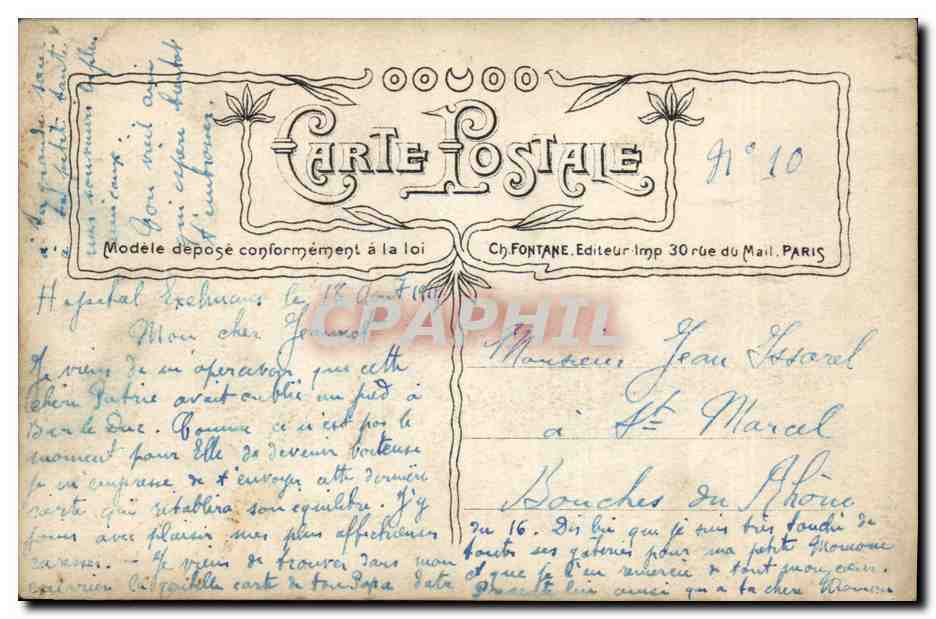 CARTE POSTALE
N° 10
Modèle déposé conformément à la loi
Ch. FONTANE. Editeur-Imp 30 rue du Mail. PARIS
CPAPHIL
Monsieur Jean Issorel
à St Marcel
Bouches du Rhône
Hopital Exelmans le 18 Aout
Mon cher Jeannot
Je viens de m'apercevoir que cette
chère Patrie avait oublié un pied à
Bar le Duc. Comme ce n'est pas le
moment pour Elle de devenir boiteuse
je m'empresse de t'envoyer cette dernière
carte qui rétablira son équilibre. J'y
joins avec plaisir mes plus affectueuses
caresses. Je viens de trouver dans mon
courrier la gentille carte de ton Papa daté
du 16. Dis lui que je suis très touché de
toutes ses gateries pour ma petite
et que je l'en remercie de tout mon coeur.
lui ainsi qu'à ta chère Maman
mes souvenirs
amicaux
Ton vieil ami
qui espère bientôt
t'embrasser